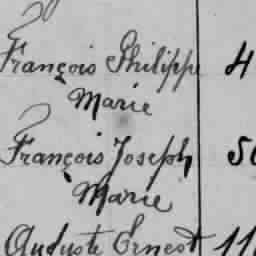 François Philippe 4
Marie
François Joseph 5
Marie
Auguste Ernest 11